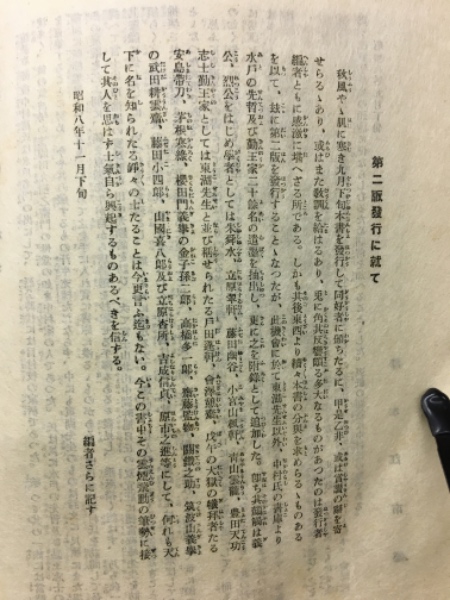 第二版發行に就て
秋風やゝ肌に寒き九月下旬本書を發行して同好者に頒ちたるに、甲是乙非、或は賞讚の辭を寄
せらるゝあり、或はまた敎訓を給はるあり、兎に角其反響頗る多大なるものがあつたのは發行者
編者ともに感激に堪へざる所である。しかも其後東西より續々本書の分與を求めらるゝものある
を以て、玆に第二版を發行することゝなつたが、此機會に於て東湖先生以外、中村氏の書庫より
水戸の先哲及び勤王家二十餘名の遺墨を抽出し、更に之を附錄として追加した。卽ち其揮毫は義
公、烈公をはじめ學者としては朱舜水、立原翠軒、藤田幽谷、小宮山楓軒、靑山雲龍、豊田天功
志士勤王家としては東湖先生と並び稱せられたる戸田蓬軒、會澤憩齋、戊午の大獄の犧牲者たる
安島帶刀、茅根寒綠、櫻田門義擧の金子孫二郎、高橋多一郎、齋藤監物、關鐵之助、筑波山義擧
の武田耕雲齋、藤田小四郎、山國喜八郎及び立原杏所、吉成信貞、原市之進等にして、何れも天
下に名を知られたる錚々の士たることは今更言ふ迄もない。今この書中その雲煙飛動の筆勢に接
して其人を思はず士氣自ら興起するものあるべきを信ずる。
昭和八年十一月下旬
編者さらに記す